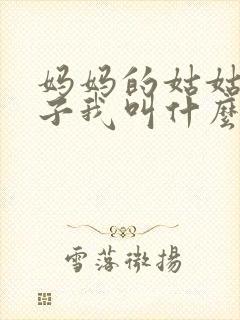 妈妈的姑姑
子我叫什麽
雪落微揚